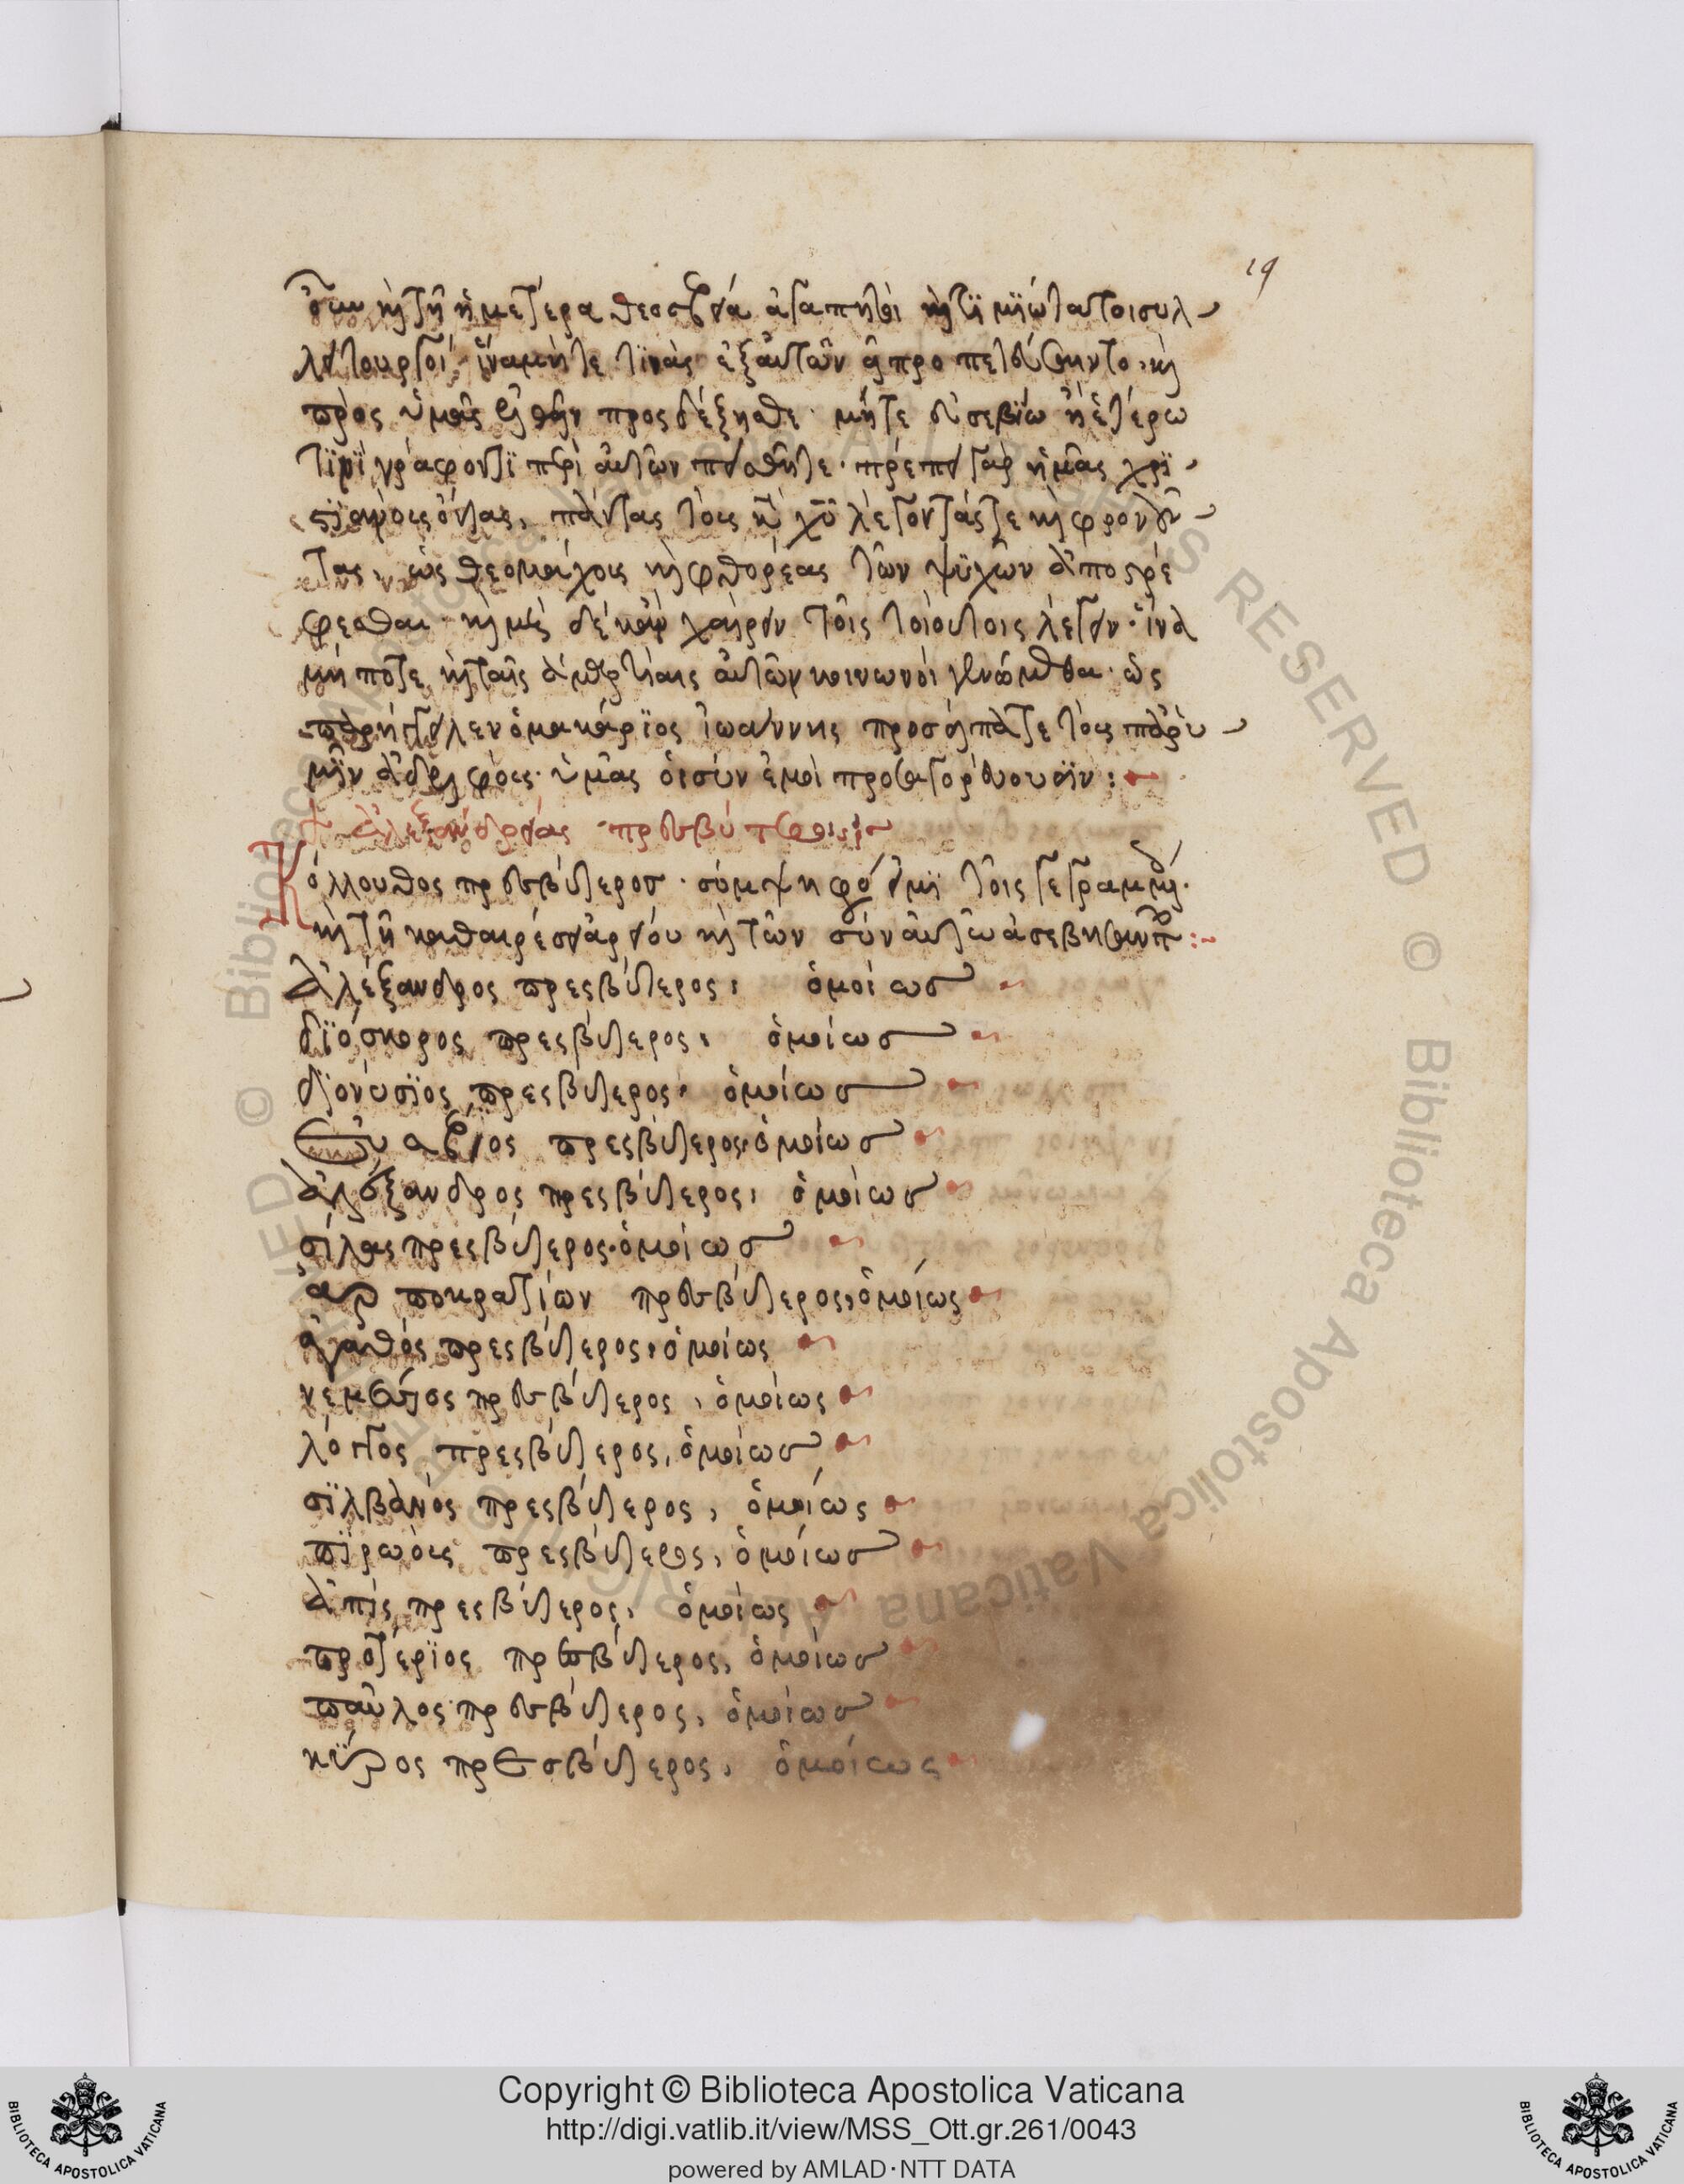 19
ὄντων καὶ τῇ ὑμετέρα θεοσεβεία ἀγαπητοὶ καὶ τιμιώτατοι συλ
λειτουργοί, ἵνα μήτε τινὰς ἐξ αὐτῶν εἰ προπετεύσαιντο, καὶ
πρὸς ὑμᾶς ἐλθεῖν προσδέξησθε· μήτε εὐσεβίω ἢ ἑτέρω
τινὶ γράφοντι περὶ αὐτῶν πεισθῆτε· πρέπει γὰρ ἡμᾶς χρι
στιανοὺς ὄντας, πάντας τοὺς κατὰ χυ λέγοντάς τε καὶ φρονοῦν
τας, ὡς θεομάχους καὶ φθορέας τῶν ψυχῶν ἀποστρέ
φεσθαι· καὶ μὴ δέ κἂν χαίρειν τοῖς τοιούτοις λέγειν· ἵνα
μή ποτε καὶ ταῖς ἁμαρτίαις αὐτῶν κοινωνοὶ γενώμεθα· ὡς
παρήγγειλεν ὁ μακάριος ἰωάννης προσείπατε τοὺς παρ' ὑ
μῖν ἀδελφούς· ὑμᾶς οἱ σὺν ἐμοὶ προσαγορεύουσιν:
ἀλεξανδρείας πρεσβύτεροι
Κόλλουθος πρεσβύτερος· σύμψηφός εἰμι τοῖς γεγραμμένοις·
καὶ τῇ καθαιρέσει ἀρείου καὶ τῶν σὺν αὐτῶ ἀσεβησάντων:
ἀλέξανδρος πρεσβύτερος, ὁμοίως
διόσκορος πρεσβύτερος, ὁμοίως
διονύσιος πρεσβύτερος, ὁμοίως
Εὐσέβιος πρεσβύτερος, ὁμοίως
ἀλέξανδρος πρεσβύτερος, ὁμοίως
σίλας πρεσβύτερος· ὁμοίως
ἁρποκρατίων πρεσβύτερος, ὁμοίως
ἀγαθός πρεσβύτερος, ὁμοίως
νεμέσιος πρεσβύτερος, ὁμοίως
λόγγος πρεσβύτερος, ὁμοίως
σιλβανός πρεσβύτερος, ὁμοίως
πίρωους πρεσβύτερος, ὁμοίως
ἀπίς πρεσβύτερος, ὁμοίως
προτέριος πρεσβύτερος, ὁμοίως
παῦλος πρεσβύτερος, ὁμοίως
κῦρος πρεσβύτερος, ὁμοίως
Copyright © Biblioteca Apostolica Vaticana
http://digi.vatlib.it/view/MSS_Ott.gr.261/0043
powered by AMLAD·NTT DATA
BIBLIOTECA APOSTOLICA VATICANA
BIBLIOTECA APOSTOLICA VATICANA